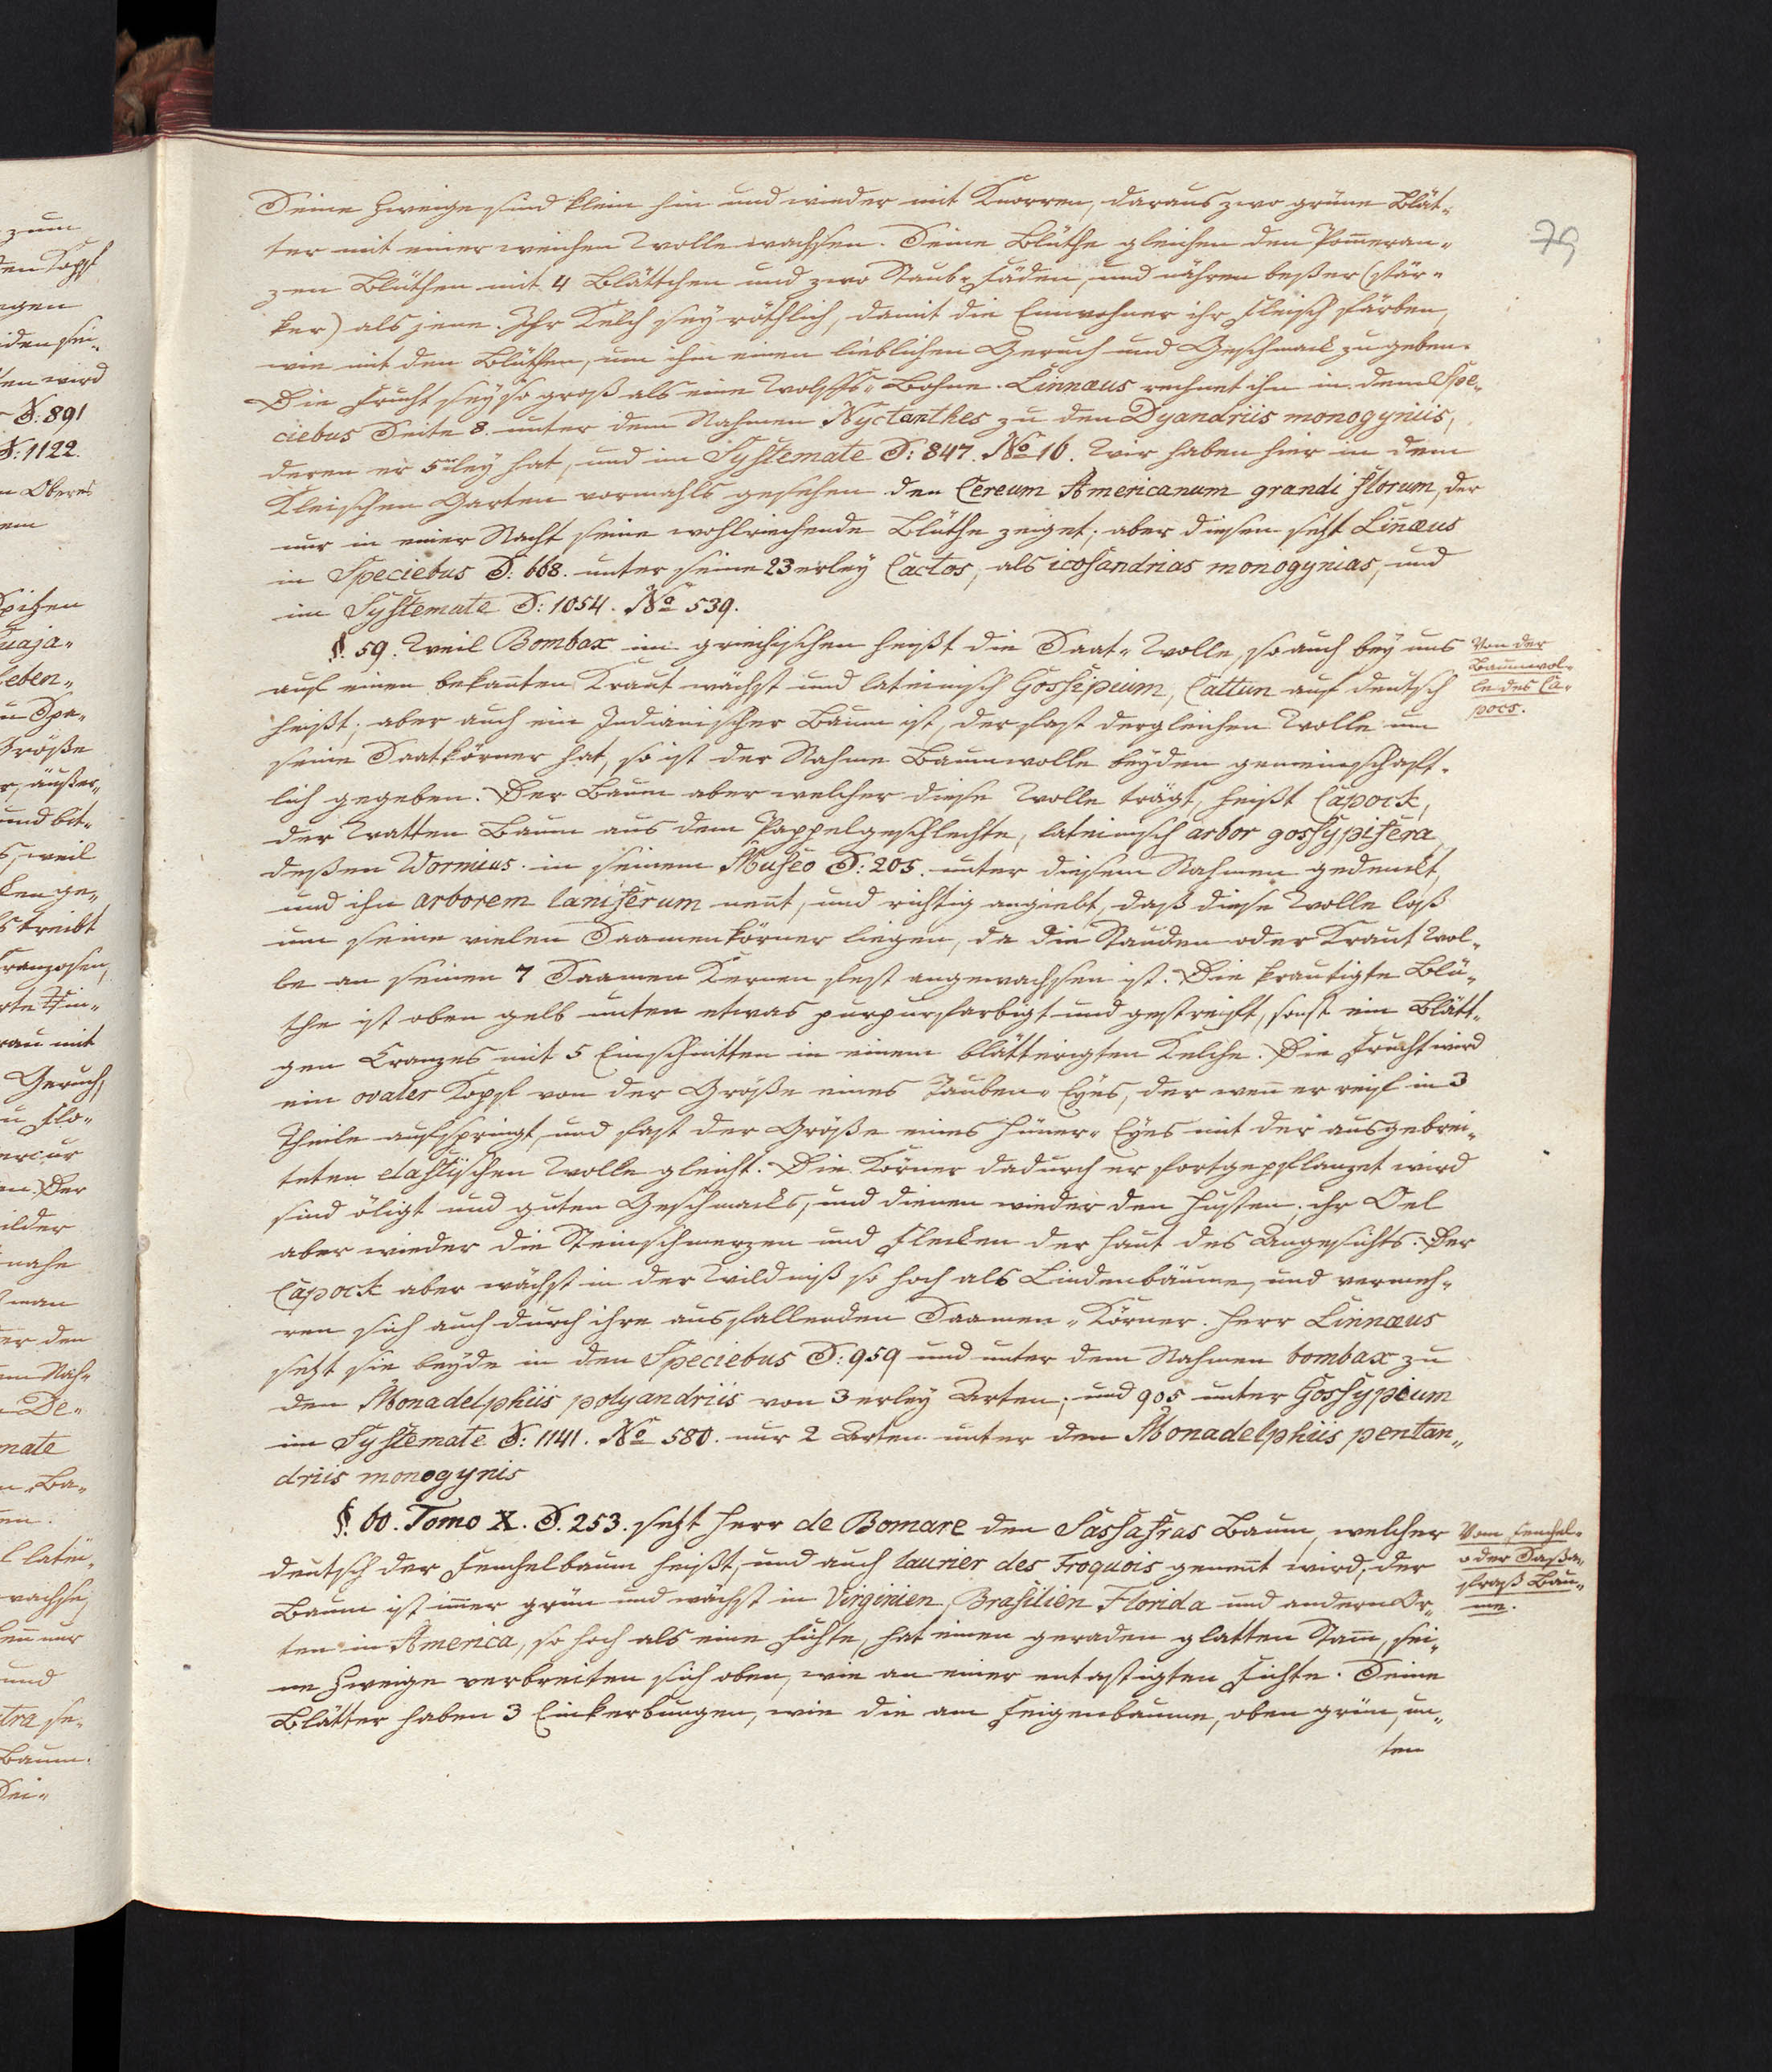 79
Seine Zweige sind klein hin und wieder mit Knorren, daraus zwo grüne Blät-
ter mit einer weichen Wolle wachsen. Seine Blüthe gleichen den Pom̄eran-
zen Blüthen mit 4 Blättchen und zwo Staub-fäden, und nähren beßer (stär-
ker) als jene. Ihr Kelch sey röthlich, damit die Einwohner ihr Fleisch färben,
wie mit den Blüthen, um ihm einen lieblichen Geruch und Geschmack zu geben.
Die Frucht sey so groß als eine Wolffs-Bohne. Linnæus rechnet ihn in dem Spe-
ciebus Seite 8. unter dem Nahmen Nyctanthes zu den Dyandriis monogyniis,
deren er 5erley hat, und im Systemate S: 847. No 16. Wir haben hier in dem
Kleischen Garten vormahls gesehen den Cereum Americanum grandi florum, der
nur in einer Nacht seine wohlriechende Blüthe zeiget; aber diesen setzt Lin̄æus
in Speciebus S: 668. unter seine 23erley Cactos, als icosandrias monogynias, und
im Systemate S: 1054. No 539.
§. 59. Weil Bombax im griechischen heißt die Saat-Wolle, so auch bey uns
auf einen bekan̄ten Kraut wächst und lateinisch Gossipium, Cattun auf deutsch
heißt; aber auch ein Indianischer Baum ist, der fast dergleichen Wolle um
seine Saatkörner hat, so ist der Nahme Baumwolle beyden gemeinschaft-
lich gegeben. Der Baum aber welcher diese Wolle trägt, heißt Capock,
der Watten Baum aus dem Pappelgeschlechte, lateinisch arbor gossypifera,
deßen Wormius in seinem Museo S: 205. unter diesem Nahmen gedenckt,
und ihn arborem laniferum nen̄t, und richtig angiebt, daß diese Wolle loß
um seine vielen Saamenkörner liegen, da die Stauden oder Kraut Wol-
le an seinen 7 Saamen Kernen fest angewachsen ist. Die krautigte Blü-
the ist oben gelb unten etwas purpurfarbigt und gestreift, sonst ein Blätt-
gen Cranzes mit 5 Einschnitten in einem blätterigten Kelche. Die Frucht wird
ein ovaler Kopf von der Größe eines Tauben-Eyes, der wen̄ er reif in 3
Theile aufspringt, und fast der Größe eines Hüner-Eyes mit der ausgebrei-
teten elastischen Wolle gleicht. Die Körner dadurch er fortgepflanzet wird
sind öligt und guten Geschmacks, und dienen wieder den Husten; ihr Oel
aber wieder die Steinschmerzen und Flecken der Haut des Angesichts. Der
Capock aber wächst in der Wildniß so hoch als Lindenbäume, und vermeh-
ren sich auch durch ihre ausfallenden Saamen-Körner. Herr Linnæus
setzt sie beyde in den Speciebus S: 959 und unter dem Nahmen bombax zu
den Monadelphiis polyandriis von 3erley Arten; und 905 unter Gossypium
im Systemate S: 1141. No 580. nur 2 Arten unter den Monadelphiis pentan-
driis monogynis
Von der
Baumwol-
le des Ca-
pocs.
§. 60. Tomo X. S. 253. setzt Herr de Bomare den Sassafras Baum, welcher
deutsch der Fenchelbaum heißt, und auch laurier des Froquois genen̄t wird; der
Baum ist im̄er grün und wächst in Virginien, Brasilien Florida und andern Or-
ten in America, so hoch als eine Fichte, hat einen geraden glatten Stam̄, sei-
ne Zweige verbreiten sich oben, wie an einer entastigten Fichte. Seine
Blätter haben 3 Einkerbungen, wie die am Feigenbaume, oben grün, un-
ten
Vom Fenchel-
oder Saßa-
fraß Bau-
me.